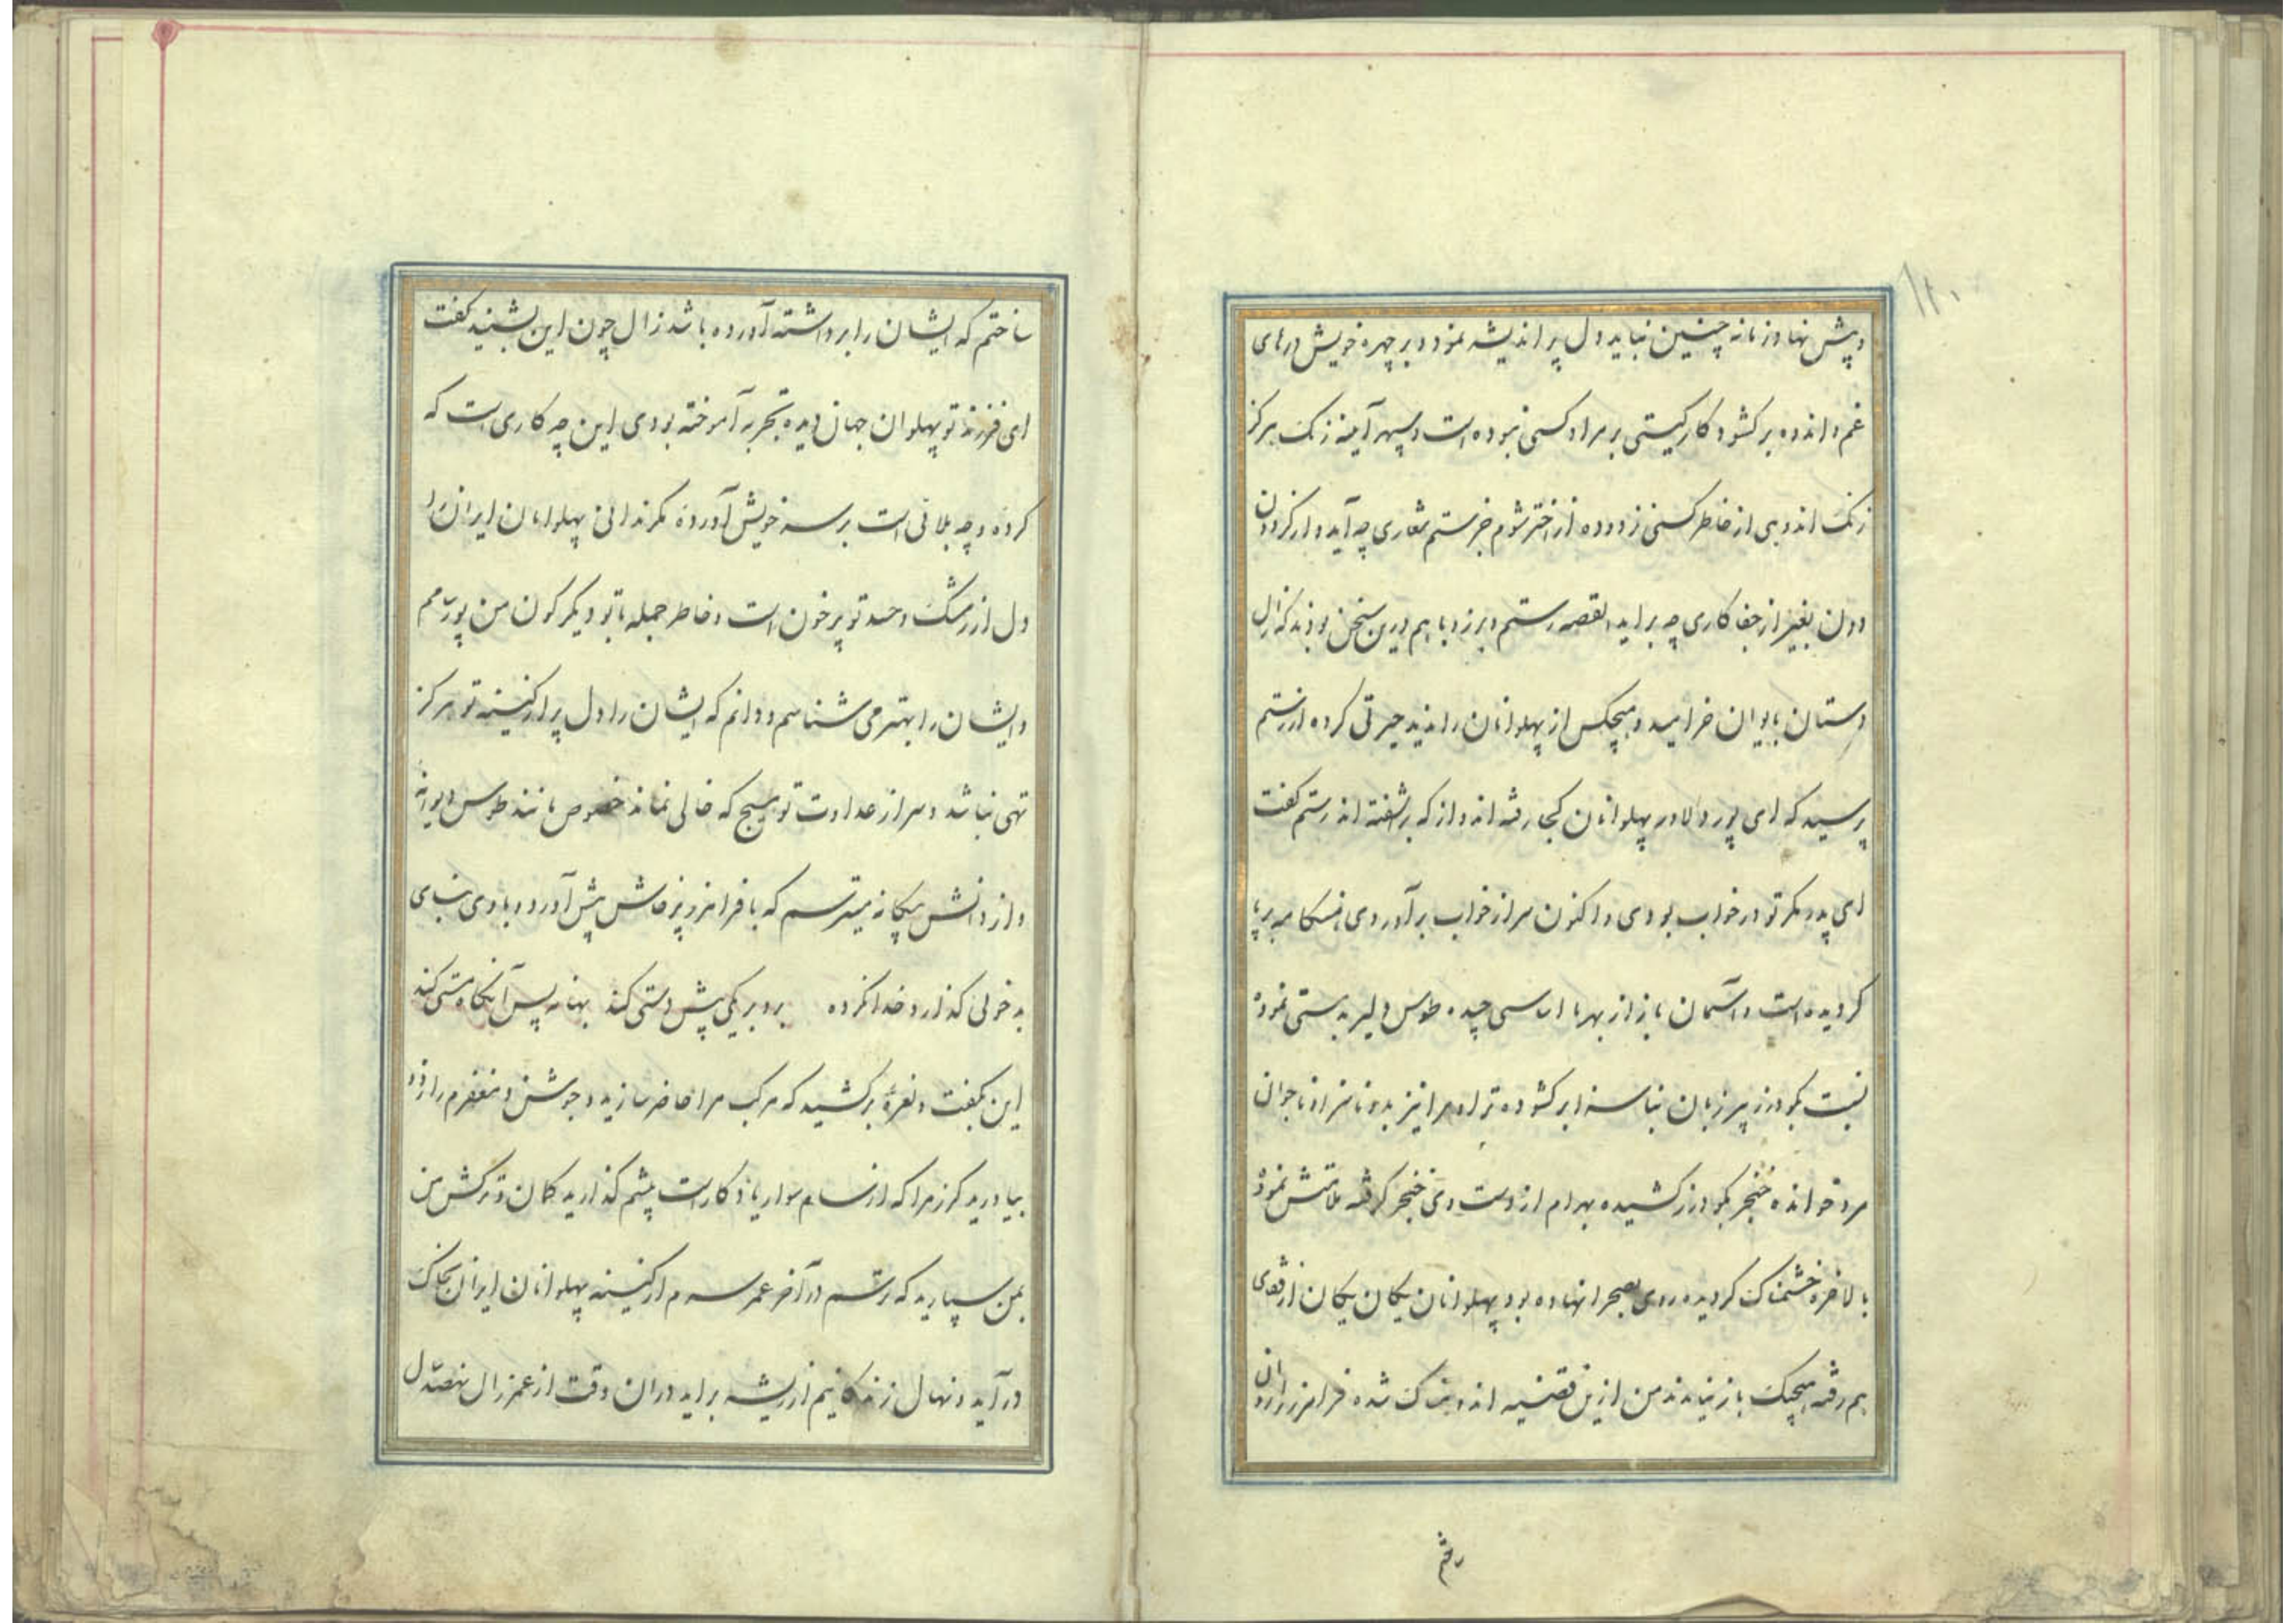 ۱۲۰
و پیش نهاد زمانه چنین نباید دل پر اندیشه نمود و بر چهره خویش درهای
غم و اندوه برکشود کار کیتی بر مراد کسی نبوده است و سپهر آینه زنک هرکز
زنک اندوهی از خاطر کسی نزدوده از اختر شوم جز ستم شعاری چه آید و از کردون
دون بغیر از جفا کاری چه براید القصه رستم و برزو با هم درین سخن بودند که زال
دستان بایوان خرامید و هیچکس از پهلوانان را ندید حیرتی کرده از رستم
پرسید که ای پور دلاور پهلوانان کجا رفته اند و از که برشفته اند رستم کفت
ای پدر مکر تو در خواب بودی و اکنون سر از خواب برآوردی هنکامه برپا
کردیده است و آسمان باز از بهر ما اساسی چیده طوس دلیر بدستی نموده
نسبت بکودرز پیر زبان بناسزا برکشوده ترا و مرا نیز بد و ناسزا و ناجوان
مرد خوانده خنجر بکودرز کشیده بهرام از دست وی خنجر کرفته ملامتش نموده
بالاخره خشمناک کردیده روی بصحرا نهاده بود پهلوانان یکان یکان از قفای
هم رفته هیچیک باز نیامدند من ازین قضیه اندوهناک شده فرامرز را روان
رفتم
ساختم که ایشان را برداشته آورده باشد زال چون این بشنید کفت
ای فرزند تو پهلوان جهان دیده تجربه آموخته بودی این چه کاری است که
کرده و چه بلائی است بر سر خویش آورده مکر ندانی پهلوانان ایران را
دل از رشک و حسد تو پر خون است و خاطر جمله با تو دیکرکون من پورتم
و ایشان را بهتر می شناسم و دانم که ایشان را دل پر از کینه تو هرکز
تهی نباشد و سر از عداوت تو هیچ که خالی نماند خصوص مانند طوس دیوانه
و از دانش بیکانه میترسم که با فرامرز پرخاش پیش آورد و با وی بنای
بدخوئی کذارد خدا نکرده برو بر یکی پیش دستی کند بهانه پس آنکاه مستی کند
این بکفت و نعره برکشید که مرکب مرا حاضر سازید و جوشن و مغفرم را زود
بیاورید کرز مرا که از سام سوار یادکار است پیشم کذارید کمان و ترکش من
بمن سپارید که رستم در آخر عمر سرم از کینه پهلوانان ایران بخاک
درآید و نهال زندکانیم از ریشه براید دران وقت از عمر زال نهصد سال